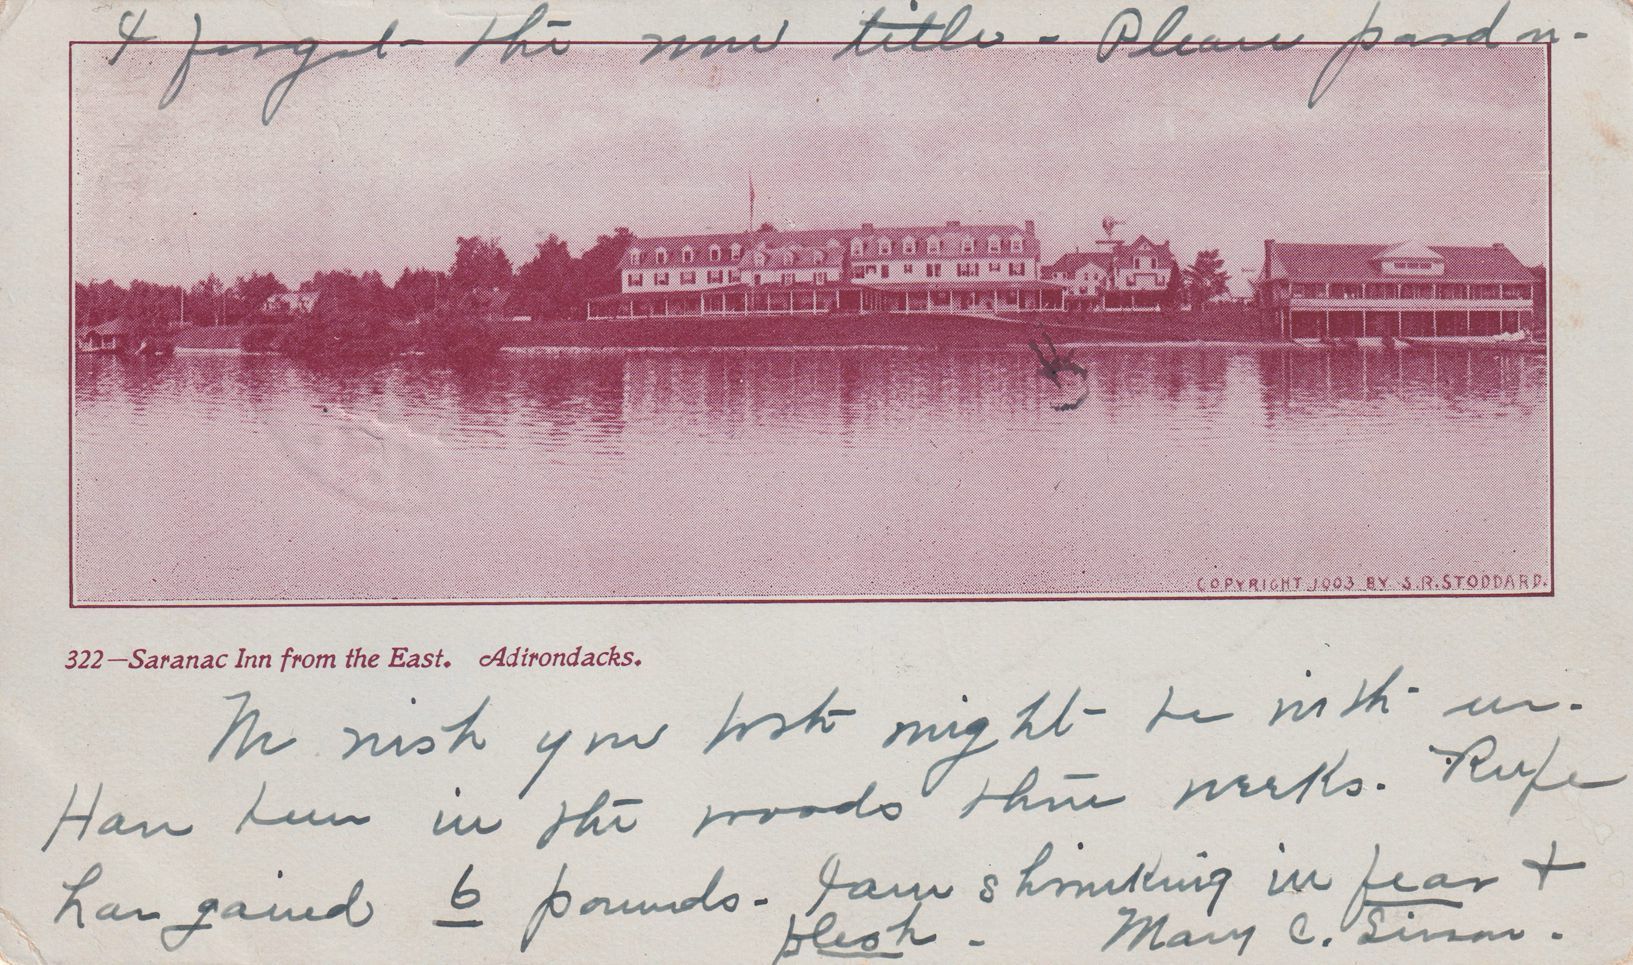 I forgot the new title - Please pardon -
COPYRIGHT 1903 BY S.R. STODDARD.
322—Saranac Inn from the East. Adirondacks.
We wish you both might be with us.
Have been in the woods three weeks. Rufe
has gained 6 pounds - I am shrinking in fear &
flesh - Mary C.